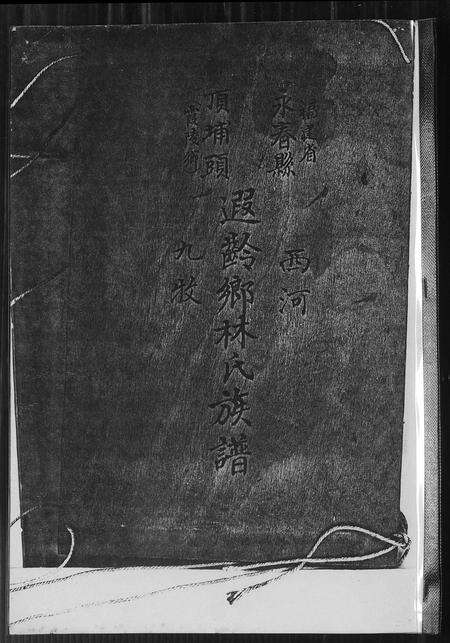 福建省
永春縣
西河
頂埔頭
遐齡鄉林氏族譜
九牧